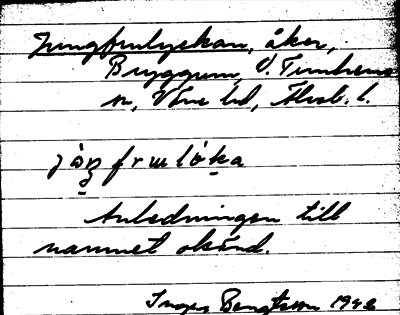 Jungfrulyckan, åker,
Bryggum, V. Tunhems
sn, Väne hd, Älvsb. l.
Anledningen till
namnet okänd.
Inger Bengtsson 1942